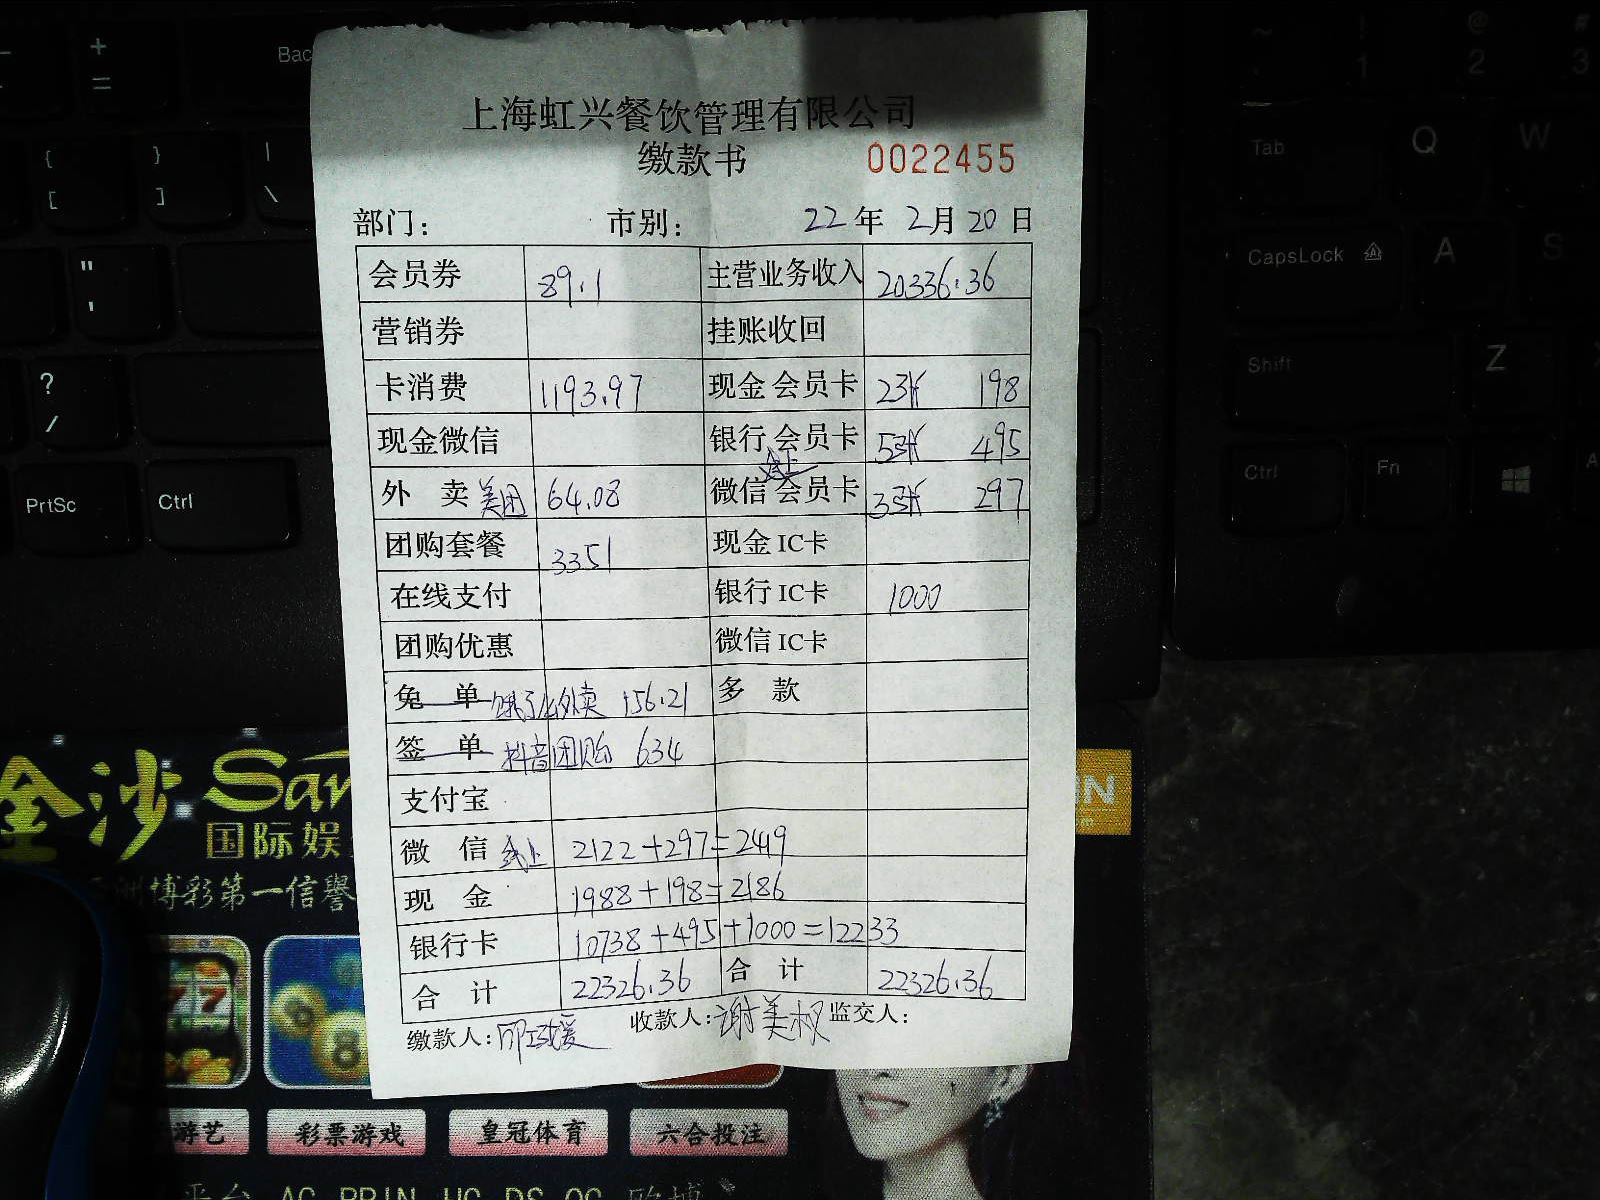 上海虹兴餐饮管理有限公司
缴款书 0022455
部门: 市别: 22年 2月 20日
会员券 89.1 主营业务收入 20336.36
营销券 挂账收回
卡消费 1193.97 现金会员卡 2张 198
现金微信 银行会员卡 5张 495
外 卖 美团 64.08 微信 线上 会员卡 3张 297
团购套餐 3351 现金IC卡
在线支付 银行IC卡 1000
团购优惠 微信IC卡
免 单 饿了么外卖 156.21 多 款
签 单 抖音团购 634
支付宝
微 信 线上 2122+297=2419
现 金 1988+198=2186
银行卡 10738+495+1000=12233
合 计 22326.36 合 计 22326.36
缴款人: 收款人: 谢美权 监交人:
+
=
Bac
{
[
}
]
|
\
"
'
?
/
PrtSc
Ctrl
~
!
1
@
2
#
3
Tab
Q
W
CapsLock
A
S
Shift
Z
Ctrl
Fn
A
金沙 San
国际娱
洲博彩第一信誉
ON
77
8
游艺
彩票游戏
皇冠体育
六合投注
平台 AG BBIN HG DS OG 欧博